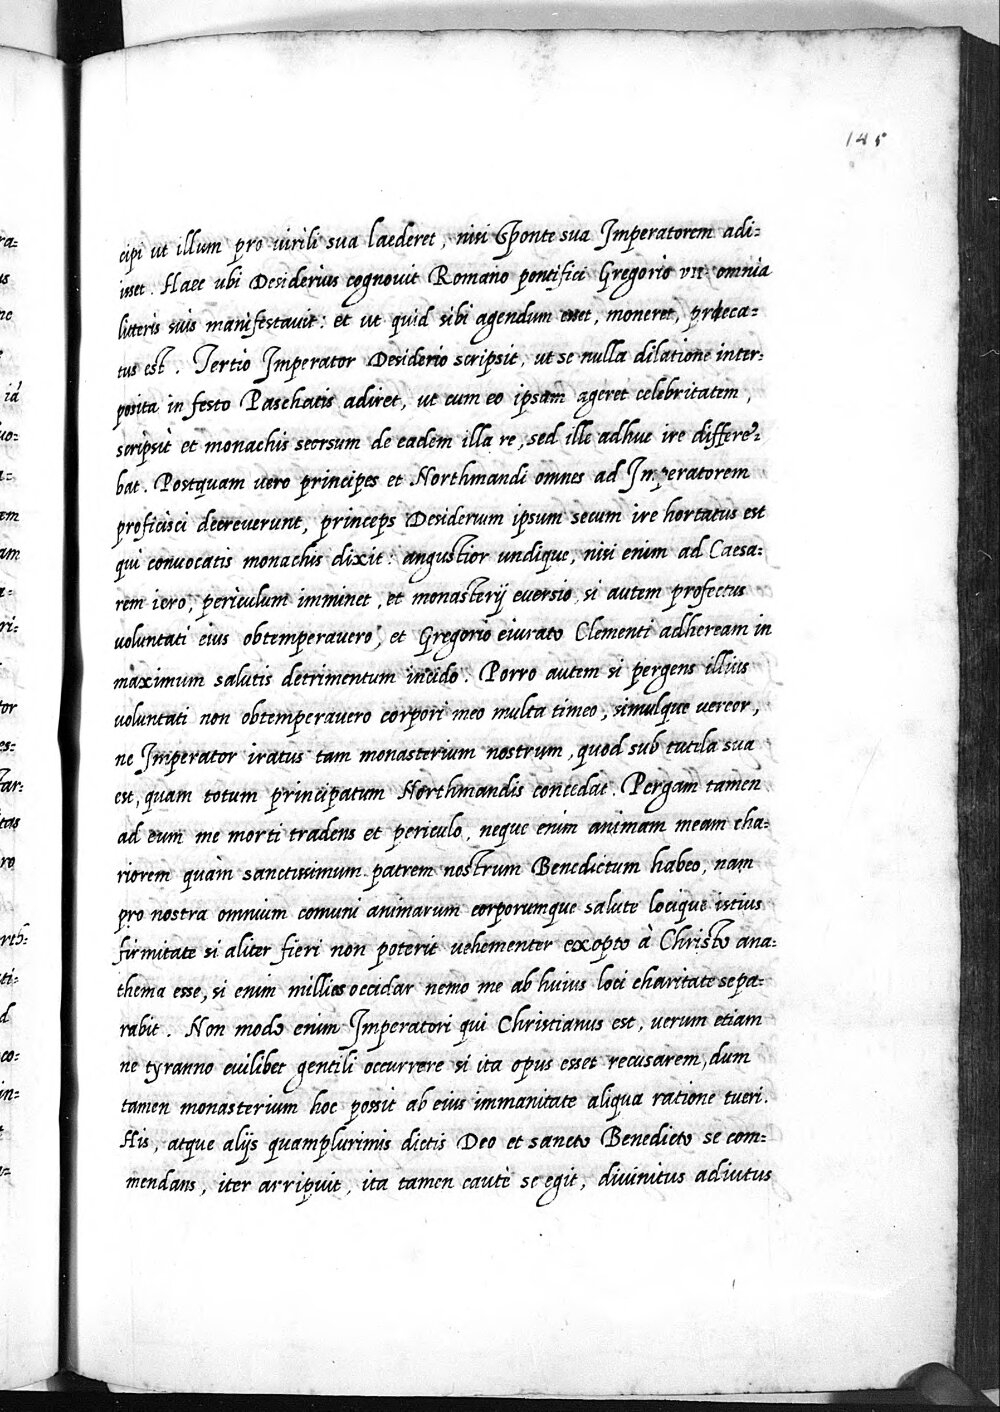 145
cipi ut illum pro uirili sua laederet, nisi sponte sua Imperatorem adi=
isset. Haec ubi Desiderius cognouit Romano pontifici Gregorio VII omnia
litteris suis manifestauit: et ut quid sibi agendum esset, moneret, praeca=
tus est. Tertio Imperator Desiderio scripsit, ut se nulla dilatione inter=
posita in festo Paschatis adiret, ut cum eo ipsam ageret celebritatem,
scripsit et monachis seorsum de eadem illa re, sed ille adhuc ire differe=
bat. Postquam uero principes et Northmandi omnes ad Imperatorem
proficisci decreuerunt, princeps Desiderium ipsum secum ire hortatus est
qui conuocatis monachis dixit: angustior undique, nisi enim ad Caesa=
rem iero, periculum imminet, et monasterij euersio, si autem profectus
uoluntati eius obtemperauero, et Gregorio eiurato Clementi adheream in
maximum salutis detrimentum incido. Porro autem si pergens illius
uoluntati non obtemperauero corpori meo multa timeo, simulque uereor,
ne Imperator iratus tam monasterium nostrum, quod sub tutila sua
est, quam totum principatum Northmandis concedat. Pergam tamen
ad eum me morti tradens et periculo, neque enim animam meam cha=
riorem quàm sanctissimum patrem nostrum Benedictum habeo, nam
pro nostra omnium comuni animarum corporumque salute locique istius
firmitate si aliter fieri non poterit uehementer exopto à Christo ana=
thema esse, si enim millies occidar nemo me ab huius loci charitate sepa=
rabit. Non modo enim Imperatori qui Christianus est, uerum etiam
ne tyranno cuilibet gentili occurrere si ita opus esset recusarem, dum
tamen monasterium hoc possit ab eius immanitate aliqua ratione tueri.
His, atque alijs quamplurimis dictis Deo et sancto Benedicto se com=
mendans, iter arripuit, ita tamen cautè se egit, diuinitus adiutus